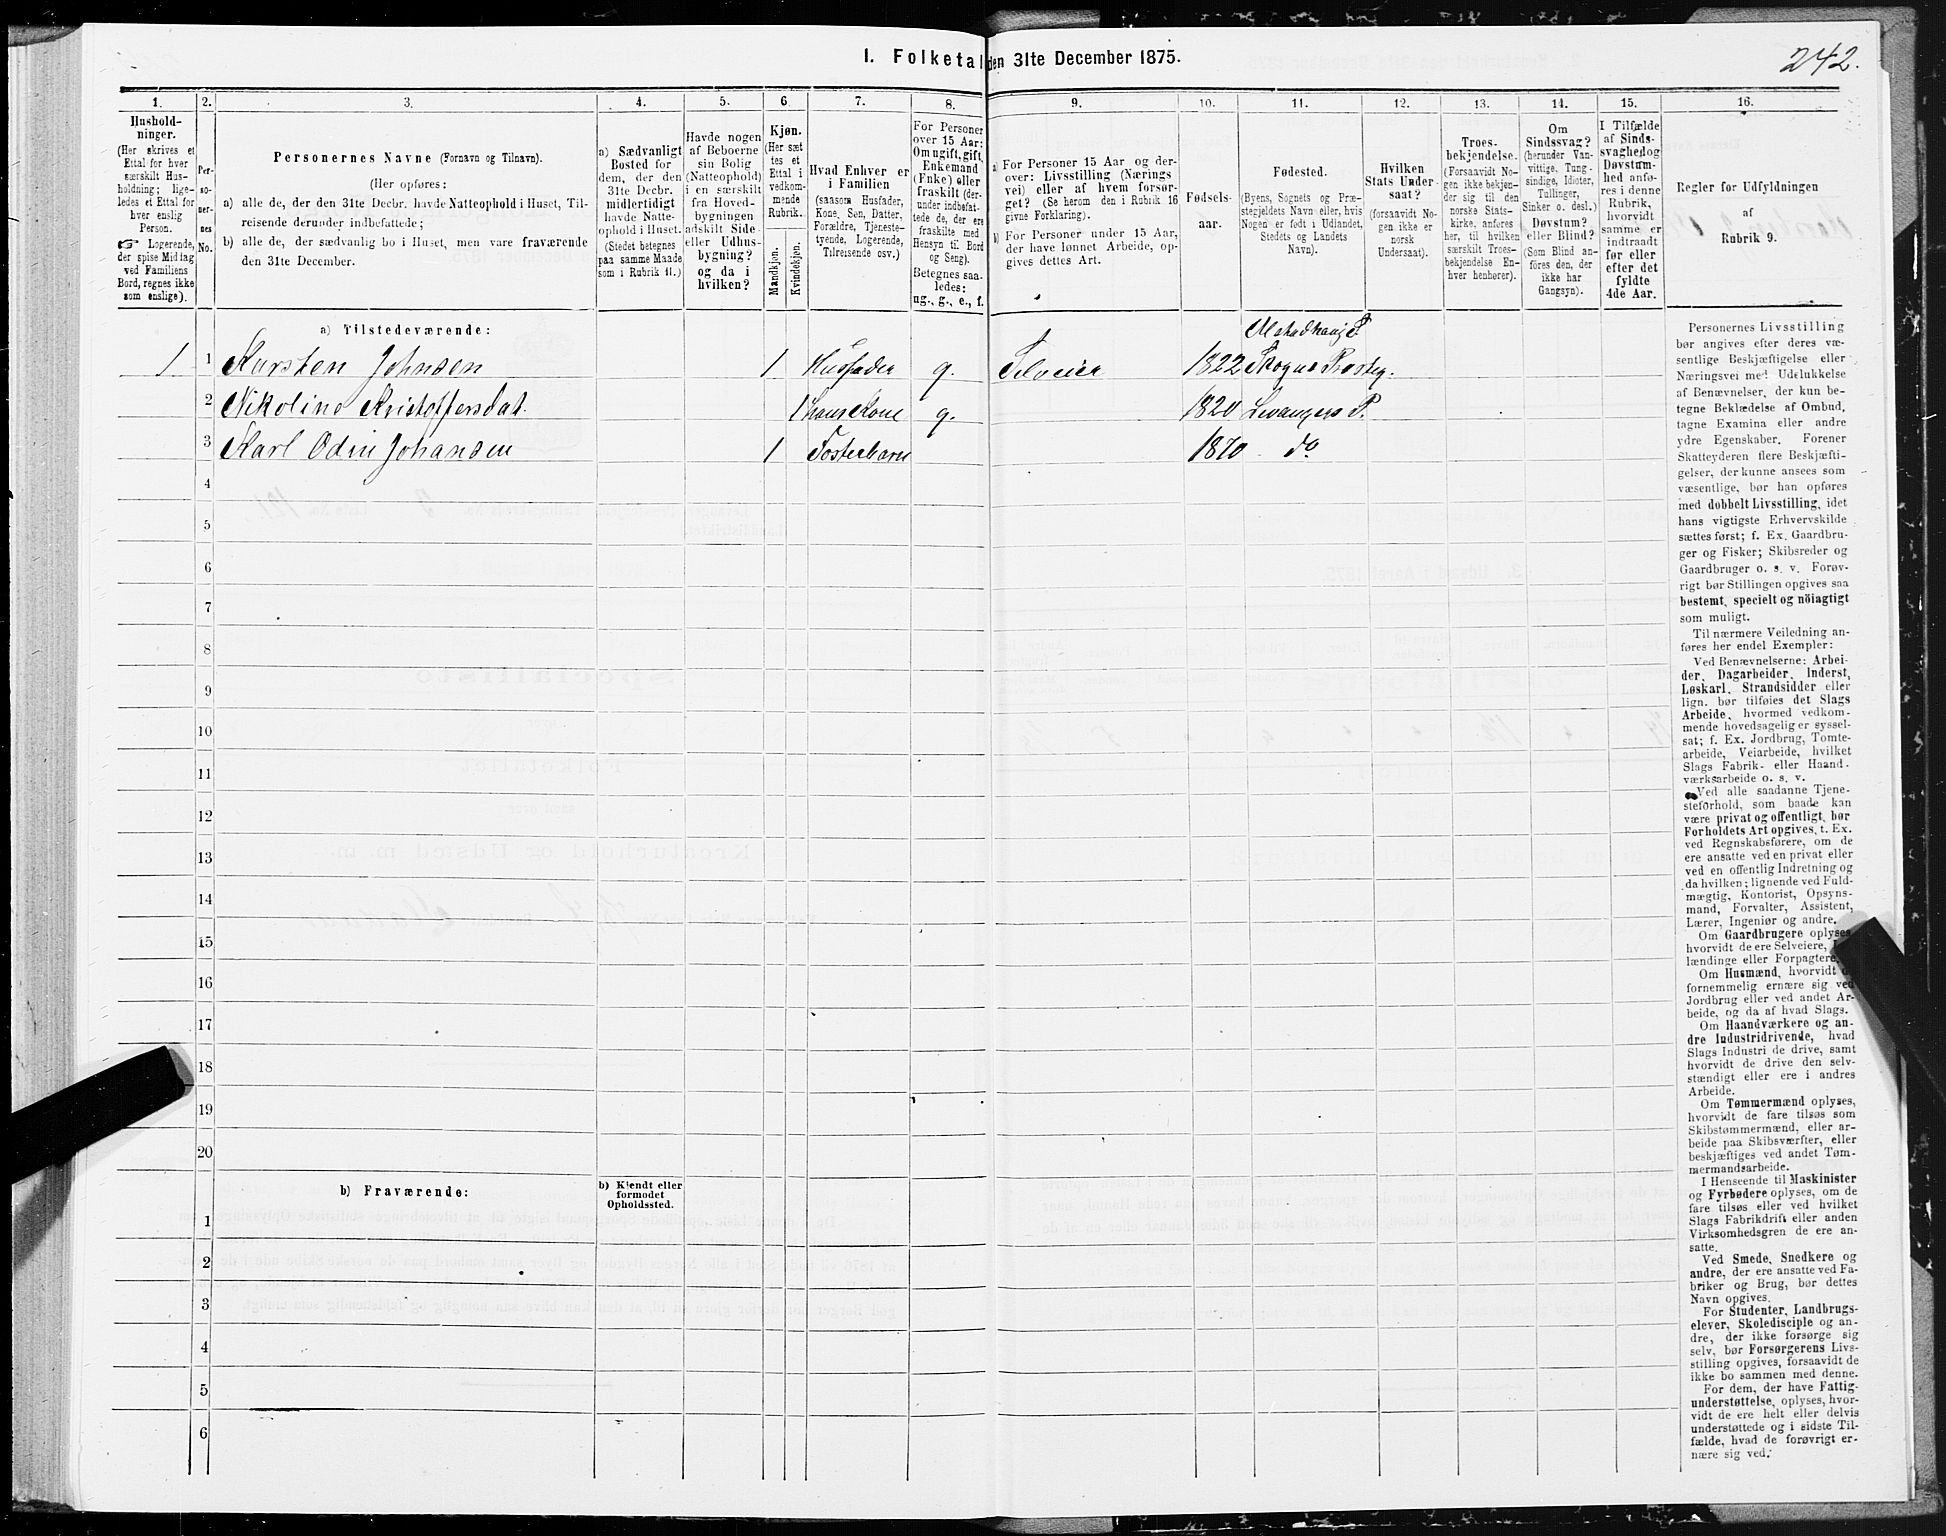 242.
I. Folketal den 31te December 1875.
1. 2. 3. 4. 5. 6. 7. 8. 9. 10. 11. 12. 13. 14. 15. 16.
Hushold-
ninger.
(Her skrives et
Ettal for hver
særskilt Hus-
holdning; lige-
ledes et Ettal for
hver enslig
Person.
☞ Logerende,
der spise Middag
ved Familiens
Bord, regnes ikke
som enslige).
Per-
so-
ner-
nes
No.
Personernes Navne (Fornavn og Tilnavn).
(Her opføres:
a) alle de, der den 31te Decbr. havde Natteophold i Huset, Til-
reisende derunder indbefattede;
b) alle de, der sædvanlig bo i Huset, men vare fraværende
den 31te December.
a) Sædvanligt
Bosted for
dem, der den
31te Decbr.
midlertidigt
havde Natte-
ophold i Huset.
(Stedet betegnes
paa samme Maade
som i Rubrik 11.)
Havde nogen
af Beboerne
sin Bolig
(Natteophold)
i en særskilt
fra Hoved-
bygningen
adskilt Side-
eller Udhus-
bygning?
og da i
hvilken?
Kjøn.
(Her sæt-
tes et
Ettal i
vedkom-
mende
Rubrik.
Mandkjøn.
Kvindekjøn.
Hvad Enhver er
i Familien
(saasom Husfader,
Kone, Søn, Datter,
Forældre, Tjeneste-
tyende, Logerende,
Tilreisende osv.)
For Personer
over 15 Aar:
Om ugift, gift,
Enkemand
(Enke) eller
fraskilt (der-
under indbefat-
tede de, der ere
fraskilte med
Hensyn til Bord
og Seng).
Betegnes saa-
ledes:
ug., g., e., f.
a) For Personer 15 Aar og der-
over: Livsstilling (Nærings-
vei) eller af hvem forsør-
get? (Se herom den i Rubrik 16
givne Forklaring).
b) For Personer under 15 Aar,
der have lønnet Arbeide, op-
gives dettes Art.
Fødsels-
aar.
Fødested.
(Byens, Sognets og Præ-
stegjeldets Navn eller, hvis
Nogen er født i Udlandet,
Stedets og Landets
Navn).
Hvilken
Stats Under-
saat?
(forsaavidt No-
gen ikke er
norsk
Undersaat).
Troes-
bekjendelse.
(Forsaavidt No-
gen ikke bekjen-
der sig til den
norske Stats-
kirke, anføres
her, til hvilken
særskilt Troes-
bekjendelse En-
hver henhører).
Om
Sindssvag?
(herunder Van-
vittige, Tung-
sindige, Idioter,
Tullinger,
Sinker o. desl.)
Døvstum?
eller Blind?
(Som Blind an-
føres den, der
ikke har
Gangsyn).
I Tilfælde
af Sinds-
svaghed og
Døvstum-
hed anfø-
res i denne
Rubrik,
hvorvidt
samme er
indtraadt
før eller
efter det
fyldte
4de Aar.
Regler for Udfyldningen
af
Rubrik 9.
a) Tilstedeværende:
1 1 Karsten Johnsen 1 Husfader g. Selveier 1822 Skogns Præsteg.
2 Nikoline Kristoffersdat. 1 hans Kone g. 1820 Levangers P.
3 Karl Odin Johansen 1 Fosterbarn 1870 do
4
5
6
7
8
9
10
11
12
13
14
15
16
17
18
19
20
b) Fraværende:
b) Kjendt eller
formodet
Opholdssted.
1
2
3
4
5
6
Personernes Livsstilling
bør angives efter deres væ-
sentlige Beskjæftigelse eller
Næringsvei med Udelukkelse
af Benævnelser, der kun be-
tegne Beklædelse af Ombud,
tagne Examina eller andre
ydre Egenskaber. Forener
Skatteyderen flere Beskjæfti-
gelser, der kunne ansees som
væsentlige, bør han opføres
med dobbelt Livsstilling, idet
hans vigtigste Erhvervskilde
sættes først; f. Ex. Gaardbru-
ger og Fisker; Skibsreder og
Gaardbruger o. s. v. Forøv-
rigt bør Stillingen opgives saa
bestemt, specielt og nöiagtigt
som muligt.
Til nærmere Veiledning an-
føres her endel Exempler:
Ved Benævnelserne: Arbei-
der, Dagarbeider, Inderst,
Løskarl, Strandsidder eller
lign. bør tilføies det Slags
Arbeide, hvormed vedkom-
mende hovedsagelig er syssel-
sat; f. Ex. Jordbrug, Tomte-
arbeide, Veiarbeide, hvilket
Slags Fabrik- eller Haand-
værksarbeide o. s. v.
Ved alle saadanne Tjene-
steforhold, som baade kan
være privat og offentligt, bør
Forholdets Art opgives, t. Ex.
ved Regnskabsførere, om de
ere ansatte ved en privat eller
ved en offentlig Indretning og
da hvilken; lignende ved Fuld-
mægtig, Kontorist, Opsyns-
mand, Forvalter, Assistent,
Lærer, Ingeniør og andre.
Om Gaardbrugere oplyses,
hvorvidt de ere Selveiere,
lændinge eller Forpagtere.
Om Husmænd, hvorvidt
fornemmelig ernære sig ved
Jordbrug eller ved andet Ar-
beide, og da af hvad Slags.
Om Haandværkere og an-
dre Industridrivende, hvad
Slags Industri de drive, samt
hvorvidt de drive den selv-
stændigt eller ere i andres
Arbeide.
Om Tømmermænd oplyses,
hvorvidt de fare tilsøs som
Skibstømmermænd, eller ar-
beide paa Skibsværfter, eller
beskjæftiges ved andet Tøm-
mermandsarbeide.
I Henseende til Maskinister
og Fyrbødere oplyses, om de
fare tilsøs eller ved hvilket
Slags Fabrikdrift eller anden
Virksomhedsgren de ere an-
satte.
Ved Smede, Snedkere og
andre, der ere ansatte ved Fa-
briker og Brug, bør dettes
Navn opgives.
For Studenter, Landbrugs-
elever, Skoledisciple og an-
dre, der ikke forsørge sig
selv, bør Forsørgerens Livs-
stilling opgives, forsaavidt de
ikke bo sammen med denne.
For dem, der have Fattig-
understøttelse, oplyses, hvor-
vidt de ere helt eller delvis
understøttede og i sidste Til-
fælde, hvad de forøvrigt er-
nære sig ved.